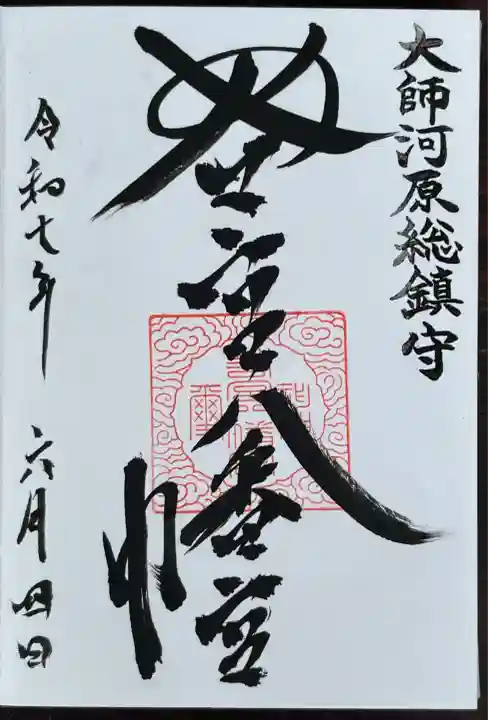 大師河原総鎮守
若宮八幡宮
令和七年 六月四日